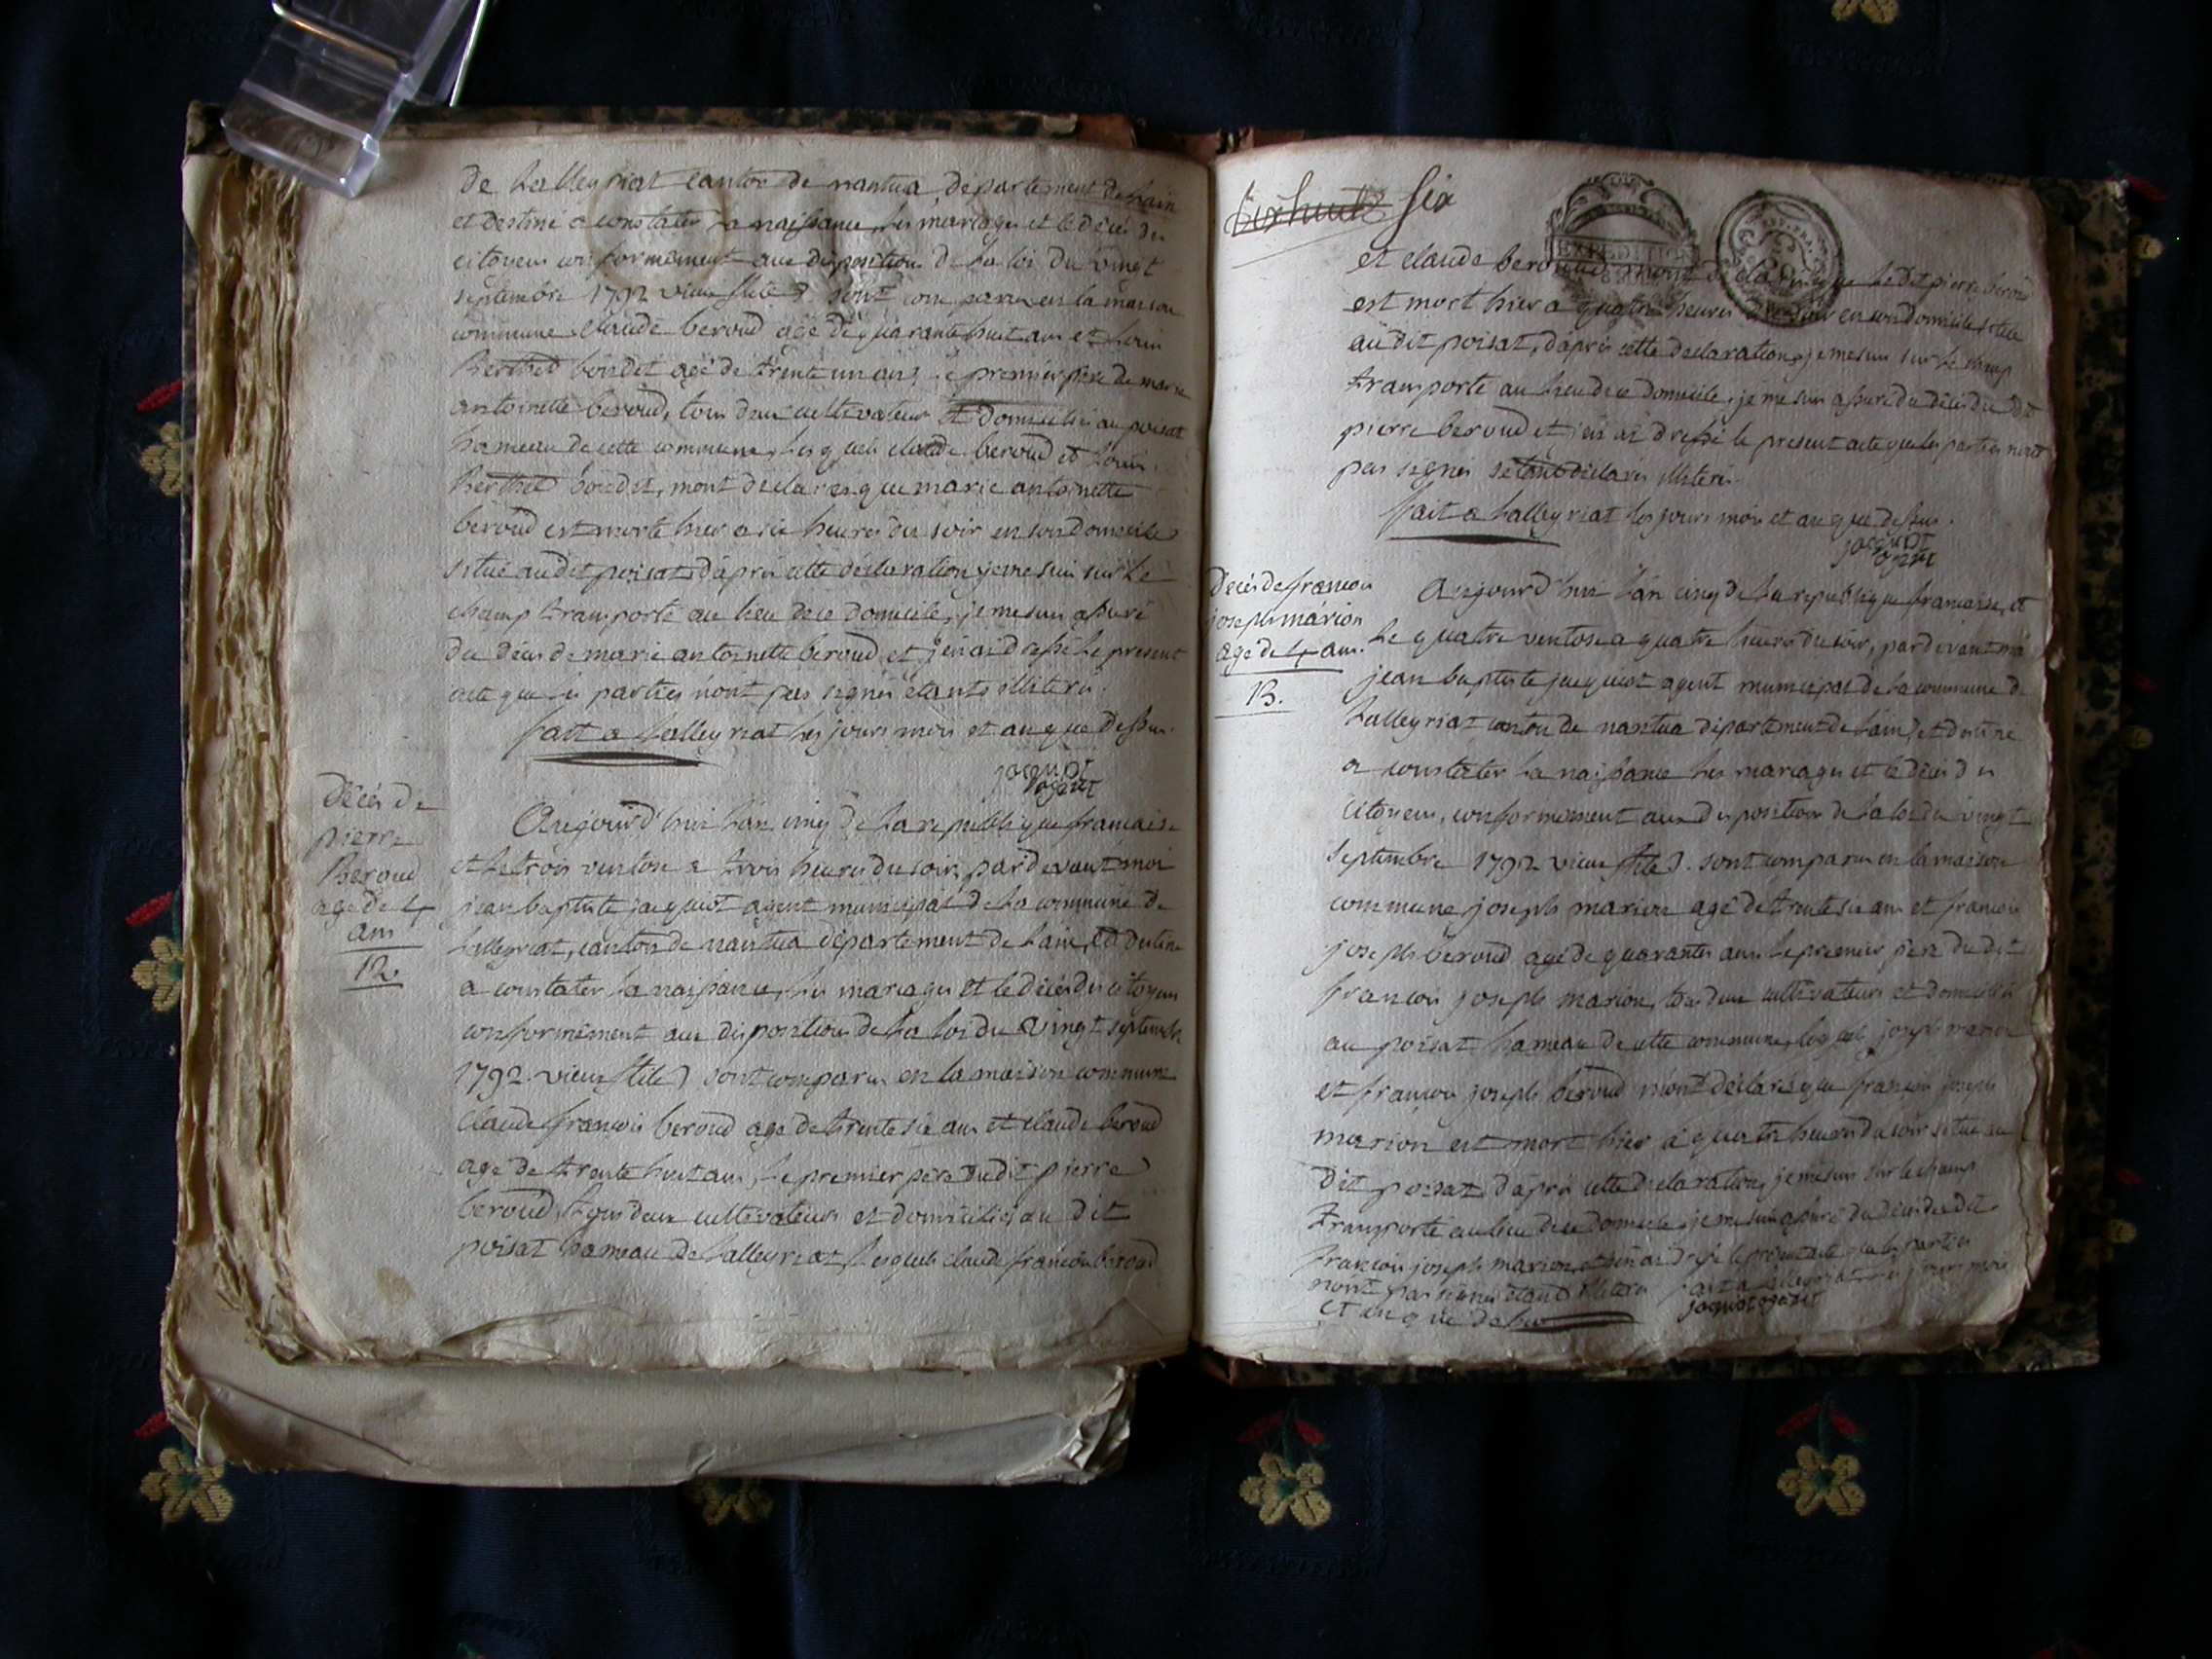 de talleyriat canton de nantua, departement de lain
et destiné a constater la naissance, les mariages et le décès des
citoyens conformément aux dispositions de la loi du vingt
septembre 1792 vieux stile) sont comparus en la maison
commune claude beroud agé de quarante huit ans et louis
Berthet bondet agé de trente un ans, le premier père de marie
antoinette beroud, tous deux cultivateurs et domiciliés au poisat
hameau de cette commune, lesquels claude beroud et louis
Berthet bondet, mont déclarés que marie antoinette
beroud est morte hier a six heures du soir en son domicile
situé au dit poisat, d'après cette déclaration je me suis sur le
champ transporté au lieu de ce domicile, je me suis assuré
du décès de marie antoinette beroud et j'en ai dressé le present
acte que les parties n'ont pas signés étants illiterés.
fait a talleyriat les jours mois et an que dessus.
jacquiot
agent
décès de
pierre
Beroud
agé de 4
ans
12.
Aujourd'hui l'an cinq de la republique francaise
et le trois ventose a trois heures du soir, pardevant moi
jean baptiste jacquiot agent municipal de la commune de
talleyriat, canton de nantua département de lain, et destiné
a constater la naissance, les mariages et le décès des citoyens
conformément aux dispositions de la loi du vingt septembre
1792 vieux stile) sont comparus en la maison commune
claude françois beroud agé de trente six ans et claude beroud
agé de trente huit ans, le premier père du dit pierre
beroud, tous deux cultivateurs et domiciliés au dit
poisat hameau de talleyriat, lesquels claude françois beroud
six
EXPEDITION
et claude beroud mont déclarés que le dit pierre beroud
est mort hier a quatre heures du soir en son domicile situé
au dit poisat, d'après cette declaration, je me suis sur le champ
transporté au lieu de ce domicile, je me suis assuré du décès du dit
pierre beroud et j'en ai dressé le present acte que les parties n'ont
pas signés déclarés illiterés.
fait a talleyriat les jours mois et an que dessus.
jacquiot
agent
Décès de francois
joseph marion
agé de 4 ans.
13.
Aujourd'hui l'an cinq de la republique francaise, et
le quatre ventose a quatre heures du soir, pardevant moi
jean baptiste jacquiot agent municipal de la commune de
talleyriat canton de nantua département de lain, et destiné
a constater la naissance les mariages et le décès des
citoyens, conformément aux dispositions de la loi du vingt
septembre 1792 vieux stile). sont comparus en la maison
commune joseph marion agé de trente six ans et françois
joseph beroud agé de quarante ans le premier père du dit
françois joseph marion, tous deux cultivateurs et domiciliés
au poisat hameau de cette commune, lesquels joseph marion
et françois joseph beroud mont déclarés que françois joseph
marion est mort hier à quatre heures du soir situé au
dit poisat, d'après cette declaration, je me suis sur le champ
transporté au lieu de ce domicile je me suis assuré du décès du dit
françois joseph marion, et j'en ai dressé le present acte que les parties
n'ont pas signés étant illiterés fait a talleyriat les jours mois
et an que dessus jacquiot agent